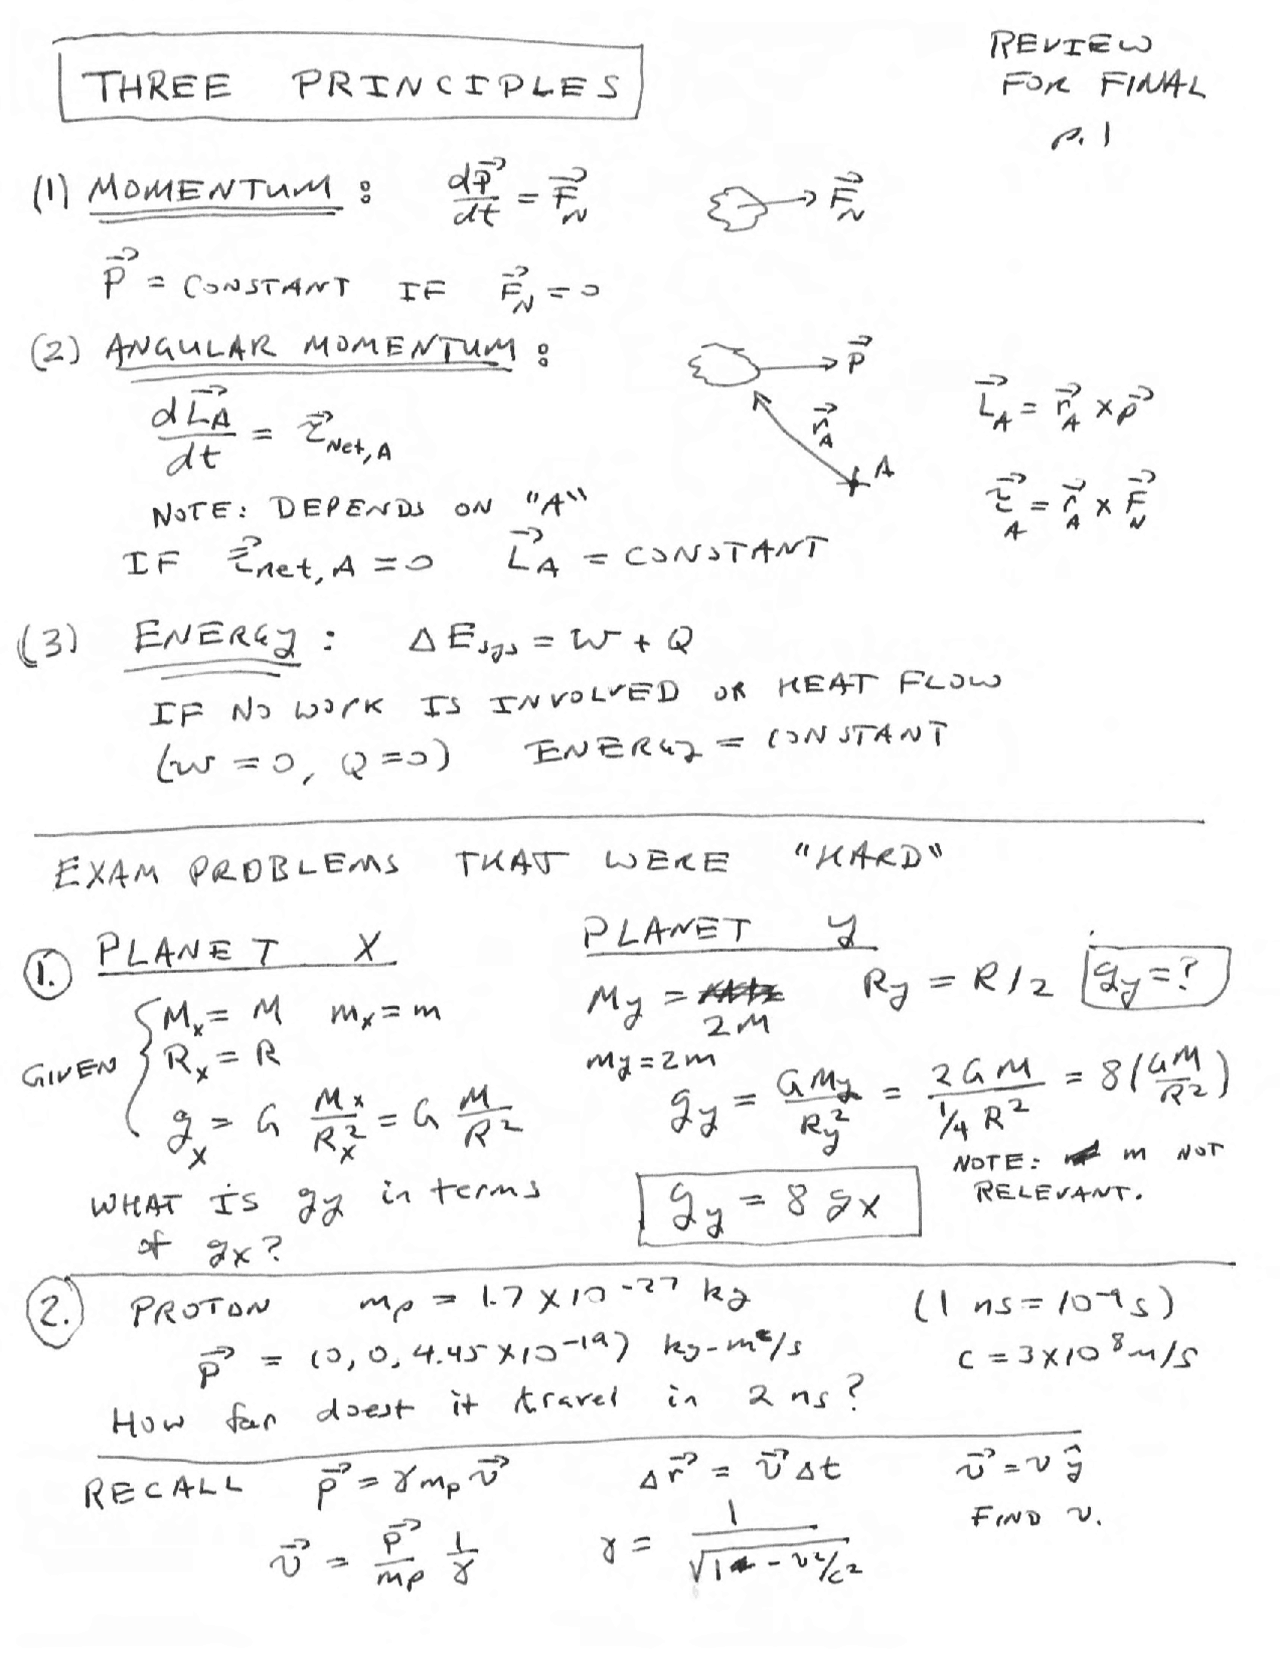 THREE PRINCIPLES
REVIEW
FOR FINAL
p. 1
(1) MOMENTUM: dp⃗/dt = F⃗_N
F⃗_N
p⃗ = CONSTANT IF F⃗_N = 0
(2) ANGULAR MOMENTUM:
p⃗
r⃗_A
A
dL⃗_A/dt = τ⃗_Net,A
L⃗_A = r⃗_A × p⃗
τ⃗_A = r⃗_A × F⃗_N
NOTE: DEPENDS ON "A"
IF τ⃗_net,A = 0 L⃗_A = CONSTANT
(3) ENERGY: ΔE_sys = W + Q
IF NO WORK IS INVOLVED OR HEAT FLOW
(W = 0, Q = 0) ENERGY = CONSTANT
EXAM PROBLEMS THAT WERE "HARD"
1. PLANET X
GIVEN
M_x = M m_x = m
R_x = R
g_x = G M_x/R_x² = G M/R²
WHAT IS g_y in terms
of g_x?
PLANET Y
M_y = 2M R_y = R/2 g_y = ?
m_y = 2m
g_y = GM_y/R_y² = 2GM/¼R² = 8(GM/R²)
NOTE: m NOT
RELEVANT.
g_y = 8 g_x
2. PROTON m_p = 1.7 × 10⁻²⁷ kg (1 ns = 10⁻⁹ s)
p⃗ = (0, 0, 4.45 × 10⁻¹⁹) kg-m/s c = 3 × 10⁸ m/s
How far doest it travel in 2 ns?
RECALL p⃗ = γ m_p v⃗ Δr⃗ = v⃗ Δt v⃗ = v ŷ
FIND v.
v⃗ = p⃗/m_p 1/γ γ = 1/√(1 - v²/c²)